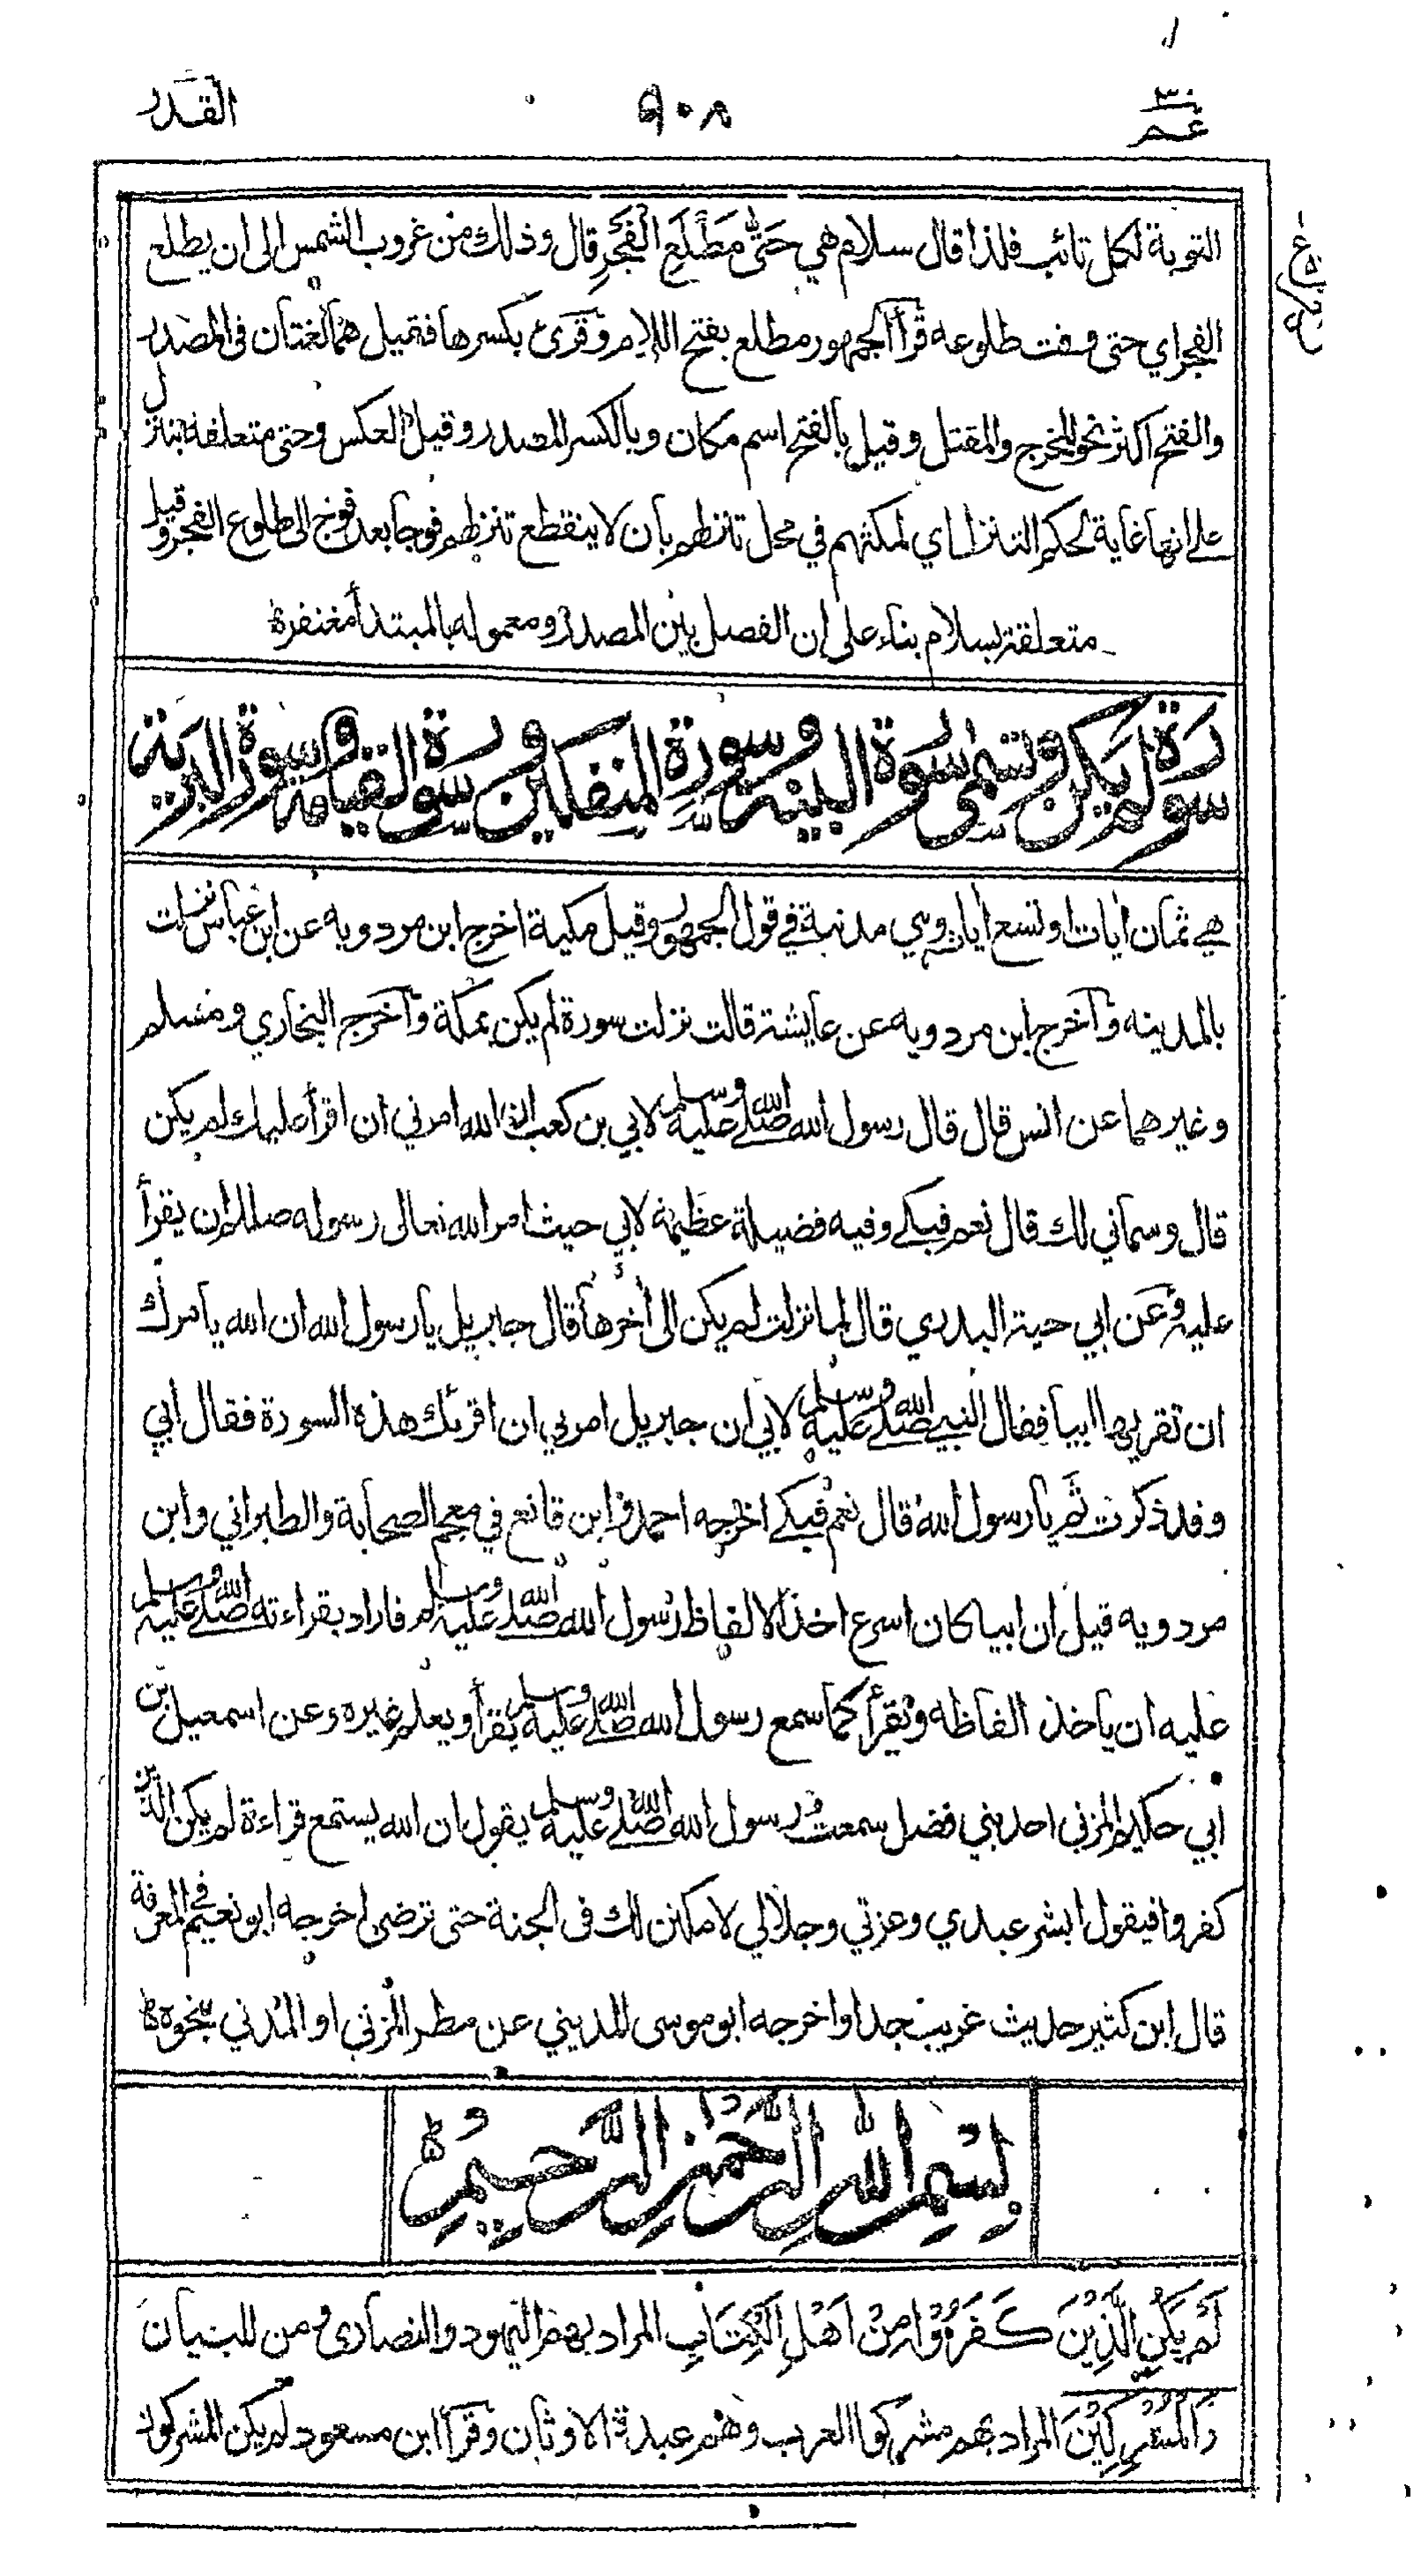 القدر
٩٠٨
٣٠
عم
التوبة لكل تائب فلذا قال سلام هي حَتّٰى مَطْلَعِ الْفَجْرِ قال وذلك من غروب الشمس الى ان يطلع
الفجر اي حتى وقت طلوعه قرأ الجمهور مطلع بفتح اللام وقرئ بكسرها فقيل هما لغتان فى المصدر
والفتح اكثر نحو المخرج والمقتل وقيل بالفتح اسم مكان وبالكسر المصدر وقيل العكس وحتى متعلقة بتنزل
على انها غاية لحكم التنزل اي لمكثهم في محل تنزلهم بان لا ينقطع تنزلهم فوجا بعد فوج الى طلوع الفجر وقيل
متعلقة بسلام بناء على ان الفصل بين المصدر ومعموله بالمبتدأ مغتفرة
سورة لم يكن وتسمى سورة البينة وسورة المنفكين وسورة القيامة وسورة البرية
هي ثمان ايات او تسع ايات وهي مدنية في قول الجمهور وقيل مكية اخرج ابن مردويه عن ابن عباس نزلت
بالمدينه وآخرج ابن مردويه عن عايشة قالت نزلت سورة لم يكن بمكة وآخرج البخاري ومسلم
وغيرهما عن انس قال قال رسول الله صلى الله عليه وسلم لابي بن كعب ان الله امرني ان اقرأ عليك لم يكن
قال وسماني لك قال نعم فبكى وفيه فضيلة عظيمة لابي حيث امر الله تعالى رسوله صللم ان يقرأ
عليه وعن ابي حية البدري قال لما نزلت لم يكن الى أخرها قال جبريل يا رسول الله ان الله يأمرك
ان تقريها ابيا فقال النبي صلى الله عليه وسلم لابي ان جبريل امرني ان اقرئك هذه السورة فقال ابي
وقد ذكرت ثم يا رسول الله قال نعم فبكى اخرجه احمد وابن قانع في معجم الصحابة والطبراني وابن
مردويه قيل ان ابيا كان اسرع اخذا لالفاظ رسول الله صلى الله عليه وسلم فاراد بقراءته صلى الله عليه وسلم
عليه ان ياخذ الفاظه ويقرأ كما سمع رسول الله صلى الله عليه وسلم يقرأ ويعلم غيره وعن اسمعيل بن
ابي حكيم المزني احد بني فضل سمعت رسول الله صلى الله عليه وسلم يقول ان الله يستمع قراءة لم يكن الذين
كفروا فيقول ابشر عبدي وعزتي وجلالي لامكنن لك فى الجنة حتى ترضى اخرجه ابو نعيم في المعرفة
قال ابن كثير حديث غريب جدا واخرجه ابو موسى المديني عن مطر المزني او المدني بنحوه
بِسْمِ اللهِ الرَّحْمٰنِ الرَّحِيْمِ
لَمْ يَكُنِ الَّذِيْنَ كَفَرُوْا مِنْ اَهْلِ الْكِتَابِ المراد بهم اليهود والنصارى ومن للبيان
وَالْمُشْرِكِيْنَ المراد بهم مشركوا العرب وهم عبدة الاوثان وقرأ ابن مسعود لم يكن المشركون